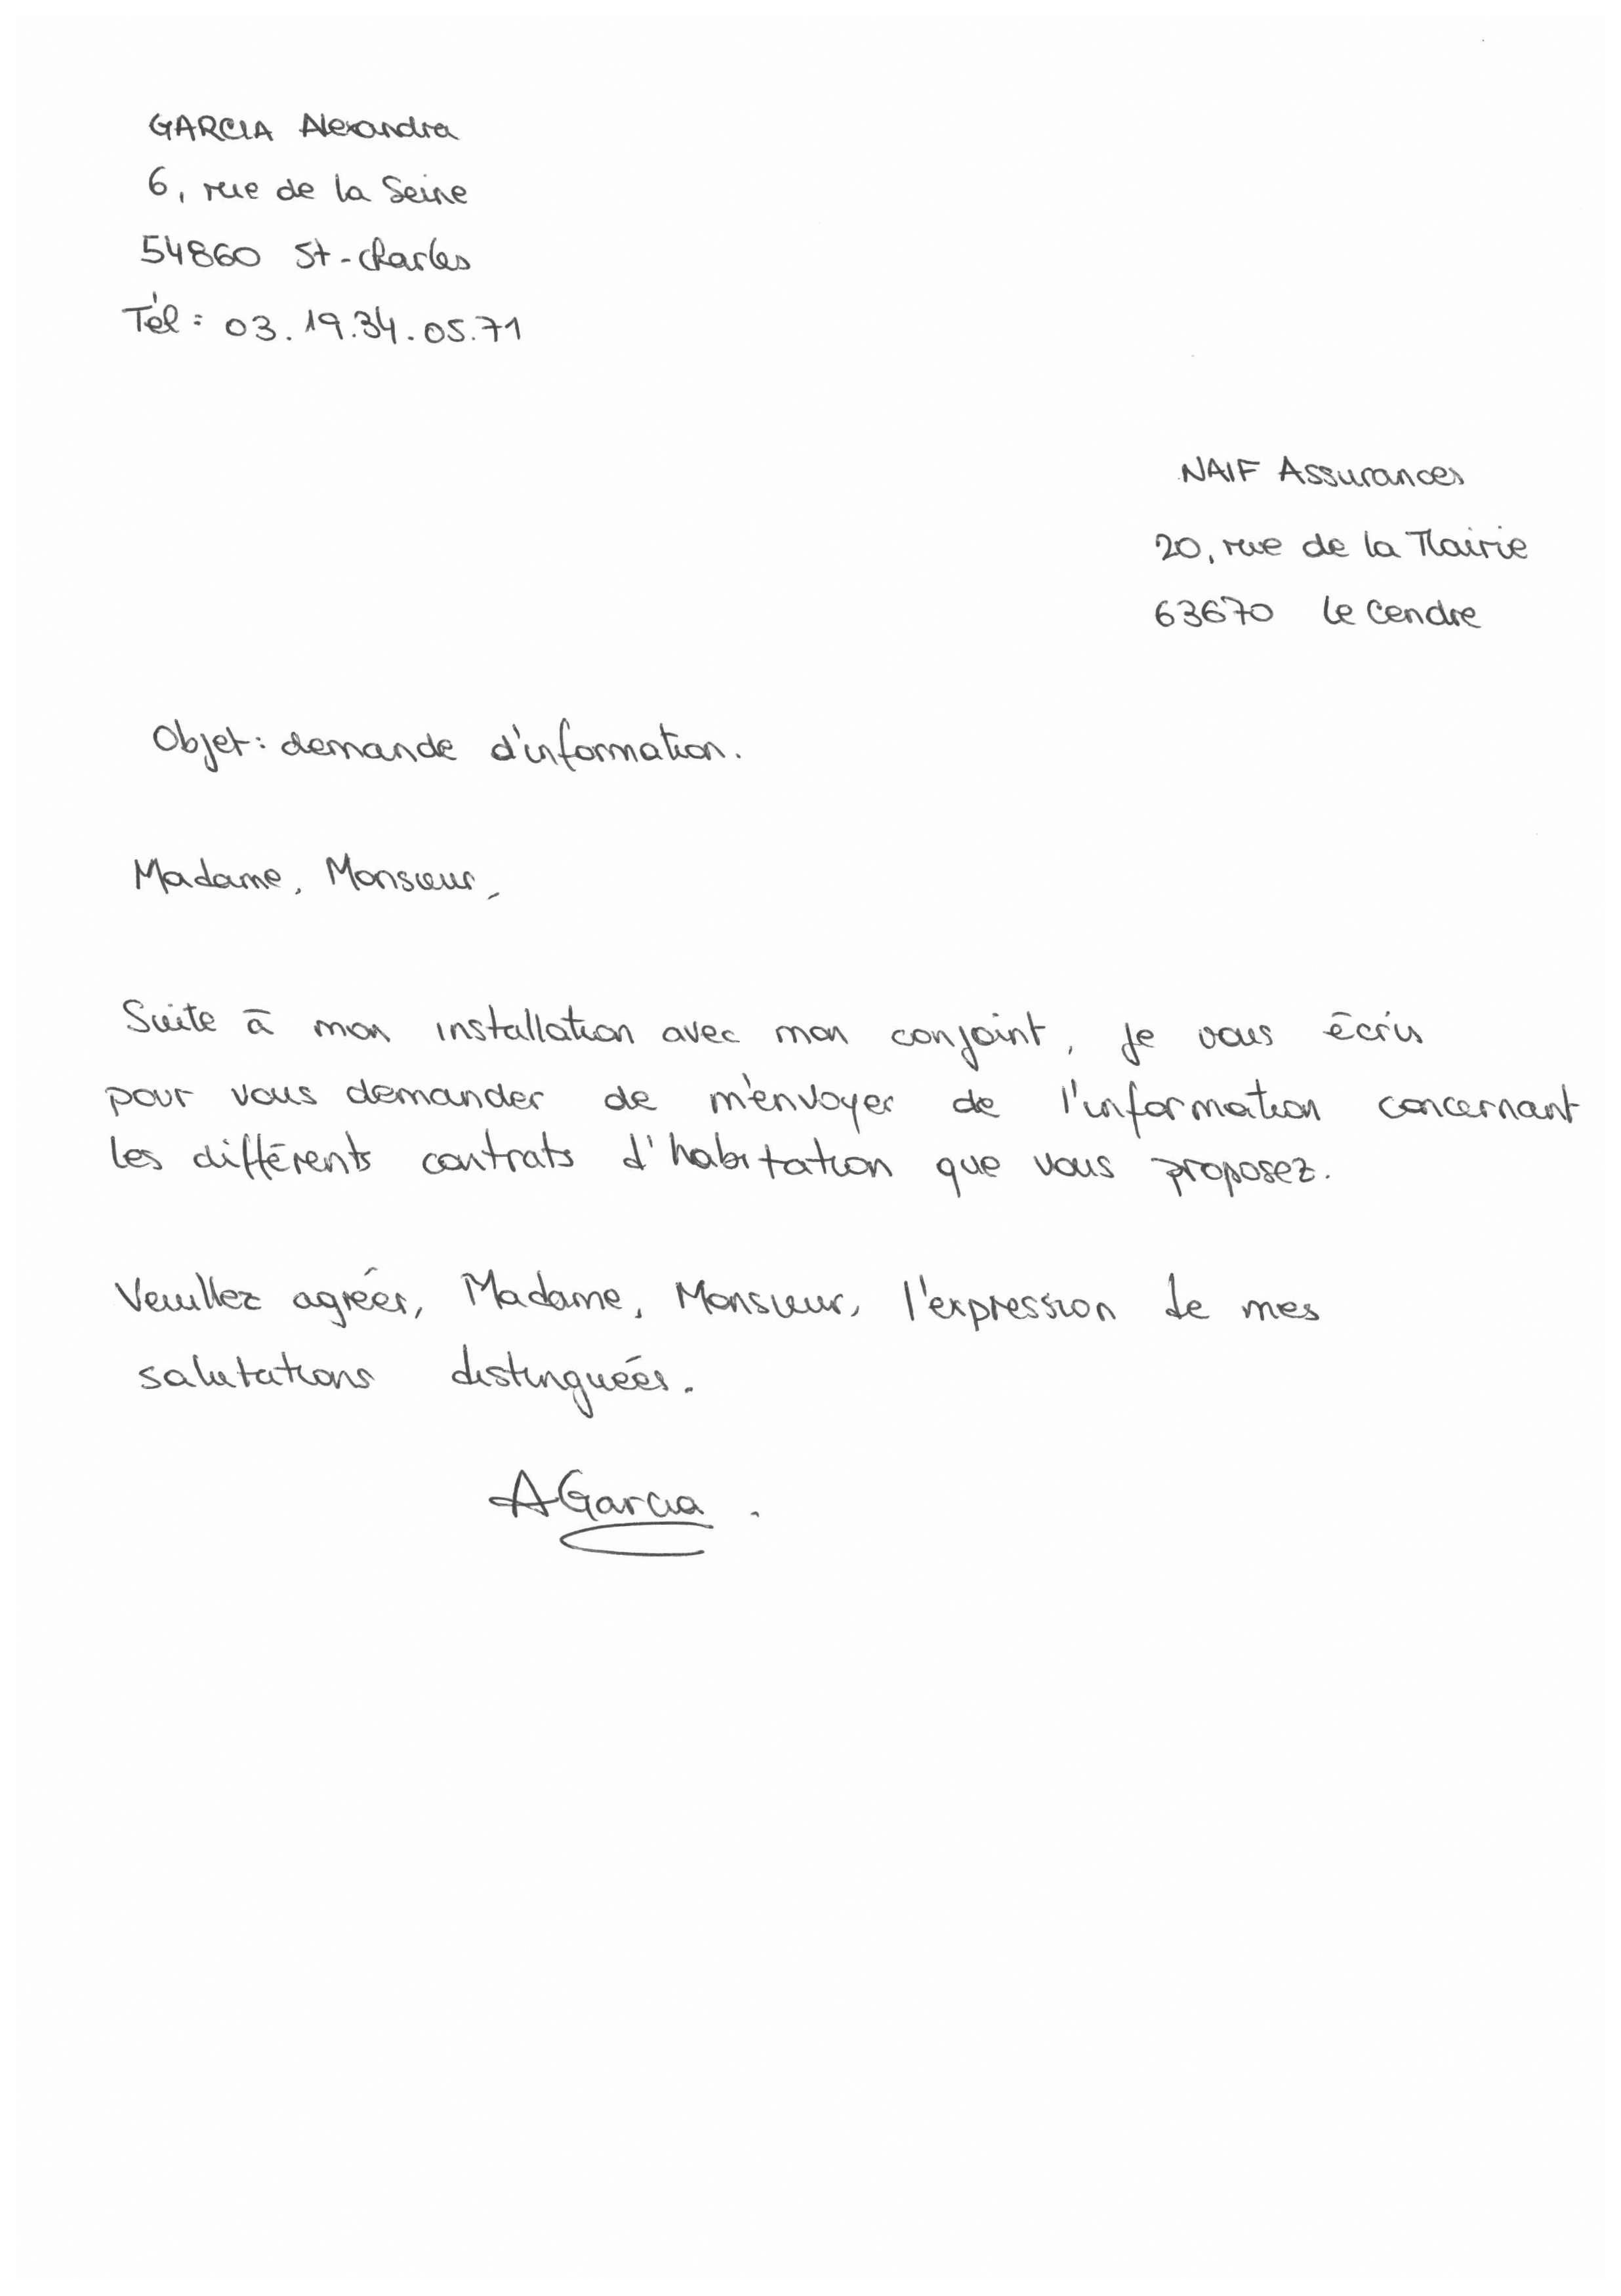 GARCIA Alexandra
6, rue de la Seine
54860 St-Charles
Tél : 03.19.34.05.71
NAIF Assurances
20, rue de la Mairie
63670 Le Cendre
Objet : demande d'information.
Madame, Monsieur,
Suite à mon installation avec mon conjoint, je vous écris
pour vous demander de m'envoyer de l'information concernant
les différents contrats d'habitation que vous proposez.
Veuillez agréer, Madame, Monsieur, l'expression de mes
salutations distinguées.
AGarcia.